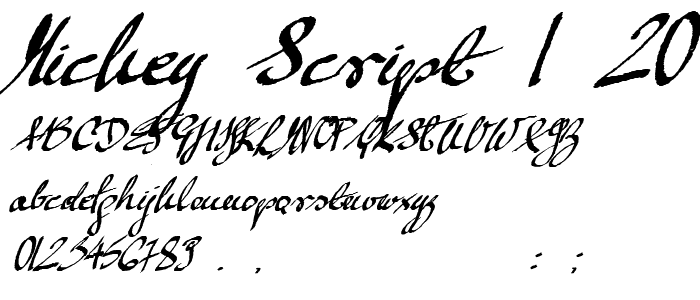 Mickey Script 1 20
ABCDEFGHIJKLMNOPQRSTUVWXYZ
abcdefghijklmnopqrstuvwxyz
0123456789 . , : ;